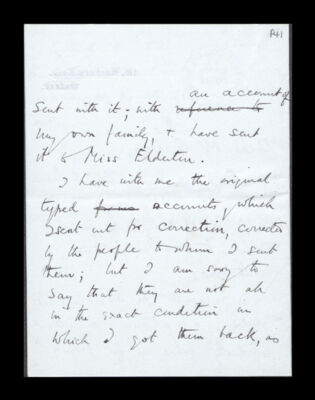 P41
an account of
Sent with it; with reference to
my own family, & have sent
it to Miss Elderton.
I have with me the original
typed accounts, which
I sent out for correction, corrected
by the people to whom I sent
them; but I am sorry to
say that they are not all
in the exact condition in
which I got them back, as